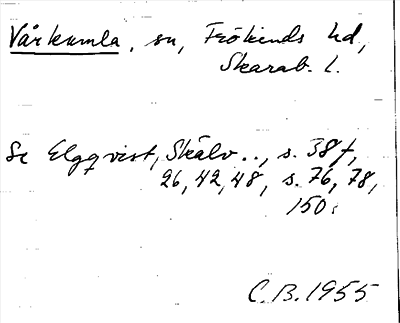 Vårkumla, sn, Frökinds hd,
Skarab. l.
Se Elgqvist, Skälv.., s. 38 f,
26, 42, 48, s. 76, 78,
150.
C.B. 1955